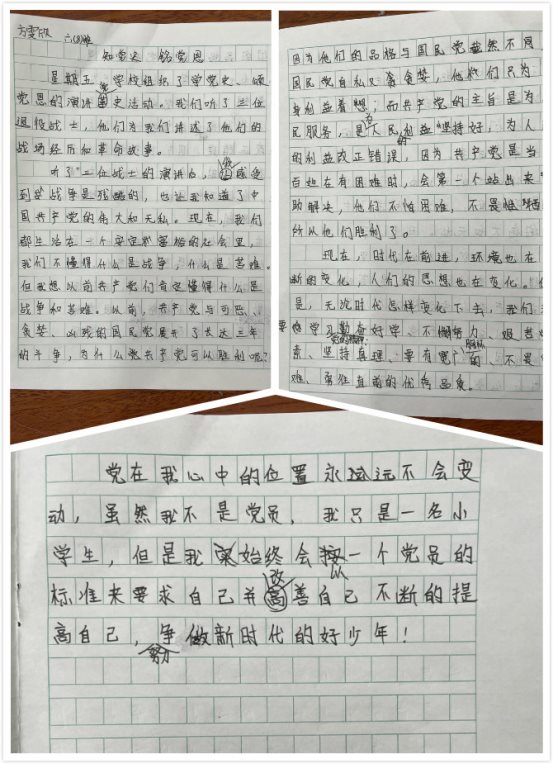 方雯欣 六(8)班
知党史 铭党恩
星期五,学校组织了学党史、颂
党恩的演讲党史活动。我们听了三位
退役战士,他们为我们讲述了他们的
战场经历和革命故事。
听了三位战士的演讲后,我感受
到了战争是残酷的,也让我知道了中
国共产党的伟大和无私。现在,我们
都生活在一个安定和谐的社会里,
我们不懂得什么是战争,什么是苦难。
但我想以前共产党们肯定懂得什么是
战争和苦难。从前,共产党与可恶、
贪婪、凶残的国民党展开了长达三年
的斗争,为什么共产党可以胜利呢?
因为他们的品格与国民党截然不同
国民党自私又贪婪,他们只为
身利益着想;而共产党的主旨是为
民服务,是为人民的利益"坚持好,为人
的利益改正错误,因为共产党是当
百姓在有困难时,会第一个站出来
助解决,他们不怕困难,不畏牺牲
所以他们胜利了。
现在,时代在前进,环境也在
断的变化,人们的思想也在变化。
是,无论时代怎样变化下去,我们
要学习勤奋好学、不懈努力、艰苦
素、坚持真理党的精神;要有宽广的胸怀、不畏
难、勇往直前的优秀品质。
党在我心中的位置永远不会变
动,虽然我不是党员,我只是一名小
学生,但是我始终会以一个党员的
标准来要求自己并改善自己不断的提
高自己,努力争做新时代的好少年!